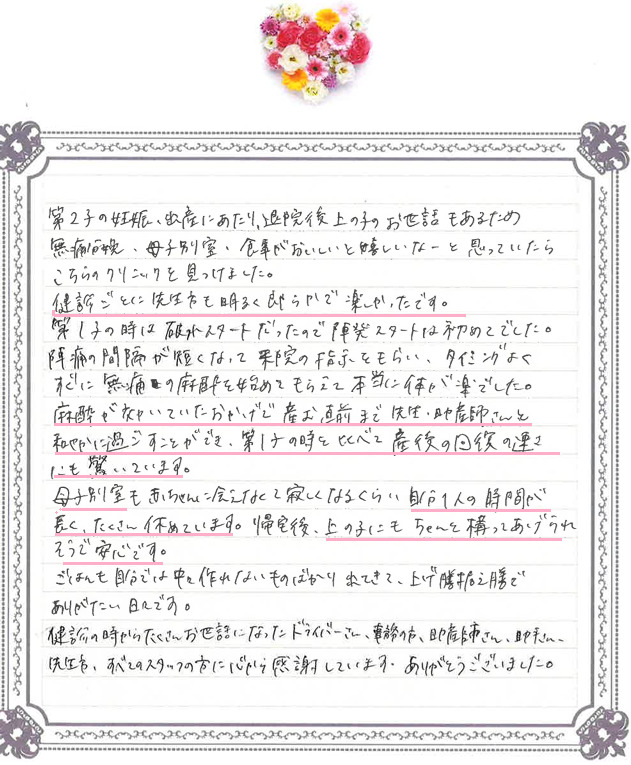 第2子の妊娠、出産にあたり、退院後上の子のお世話もあるため
無痛分娩、母子別室、食事がおいしいと嬉しいなーと思っていたら
こちらのクリニックを見つけました。
健診ごとに先生方も明るく朗らかで楽しかったです。
第1子の時は破水スタートだったので陣発スタートは初めてでした。
陣痛の間隔が短くなって来院の指示をもらい、タイミングよく
すぐに無痛の麻酔を始めてもらえて本当に体が楽でした。
麻酔が効いていたおかげで産む直前まで先生・助産師さんと
和やかに過ごすことができ、第1子の時と比べて産後の回復の速さ
にも驚いています。
母子別室も赤ちゃんに会えなくて寂しくなるくらい自分1人の時間が
長く、たくさん休めています。帰宅後、上の子にもちゃんと構ってあげられ
そうで安心です。
ごはんも自分では中々作れないものばかり出てきて、上げ膳据え膳で
ありがたい日々です。
健診の時からたくさんお世話になったドライバーさん、事務の方、助産師さん、助手さん、
先生方、すべてのスタッフの方に心から感謝しています。ありがとうございました。